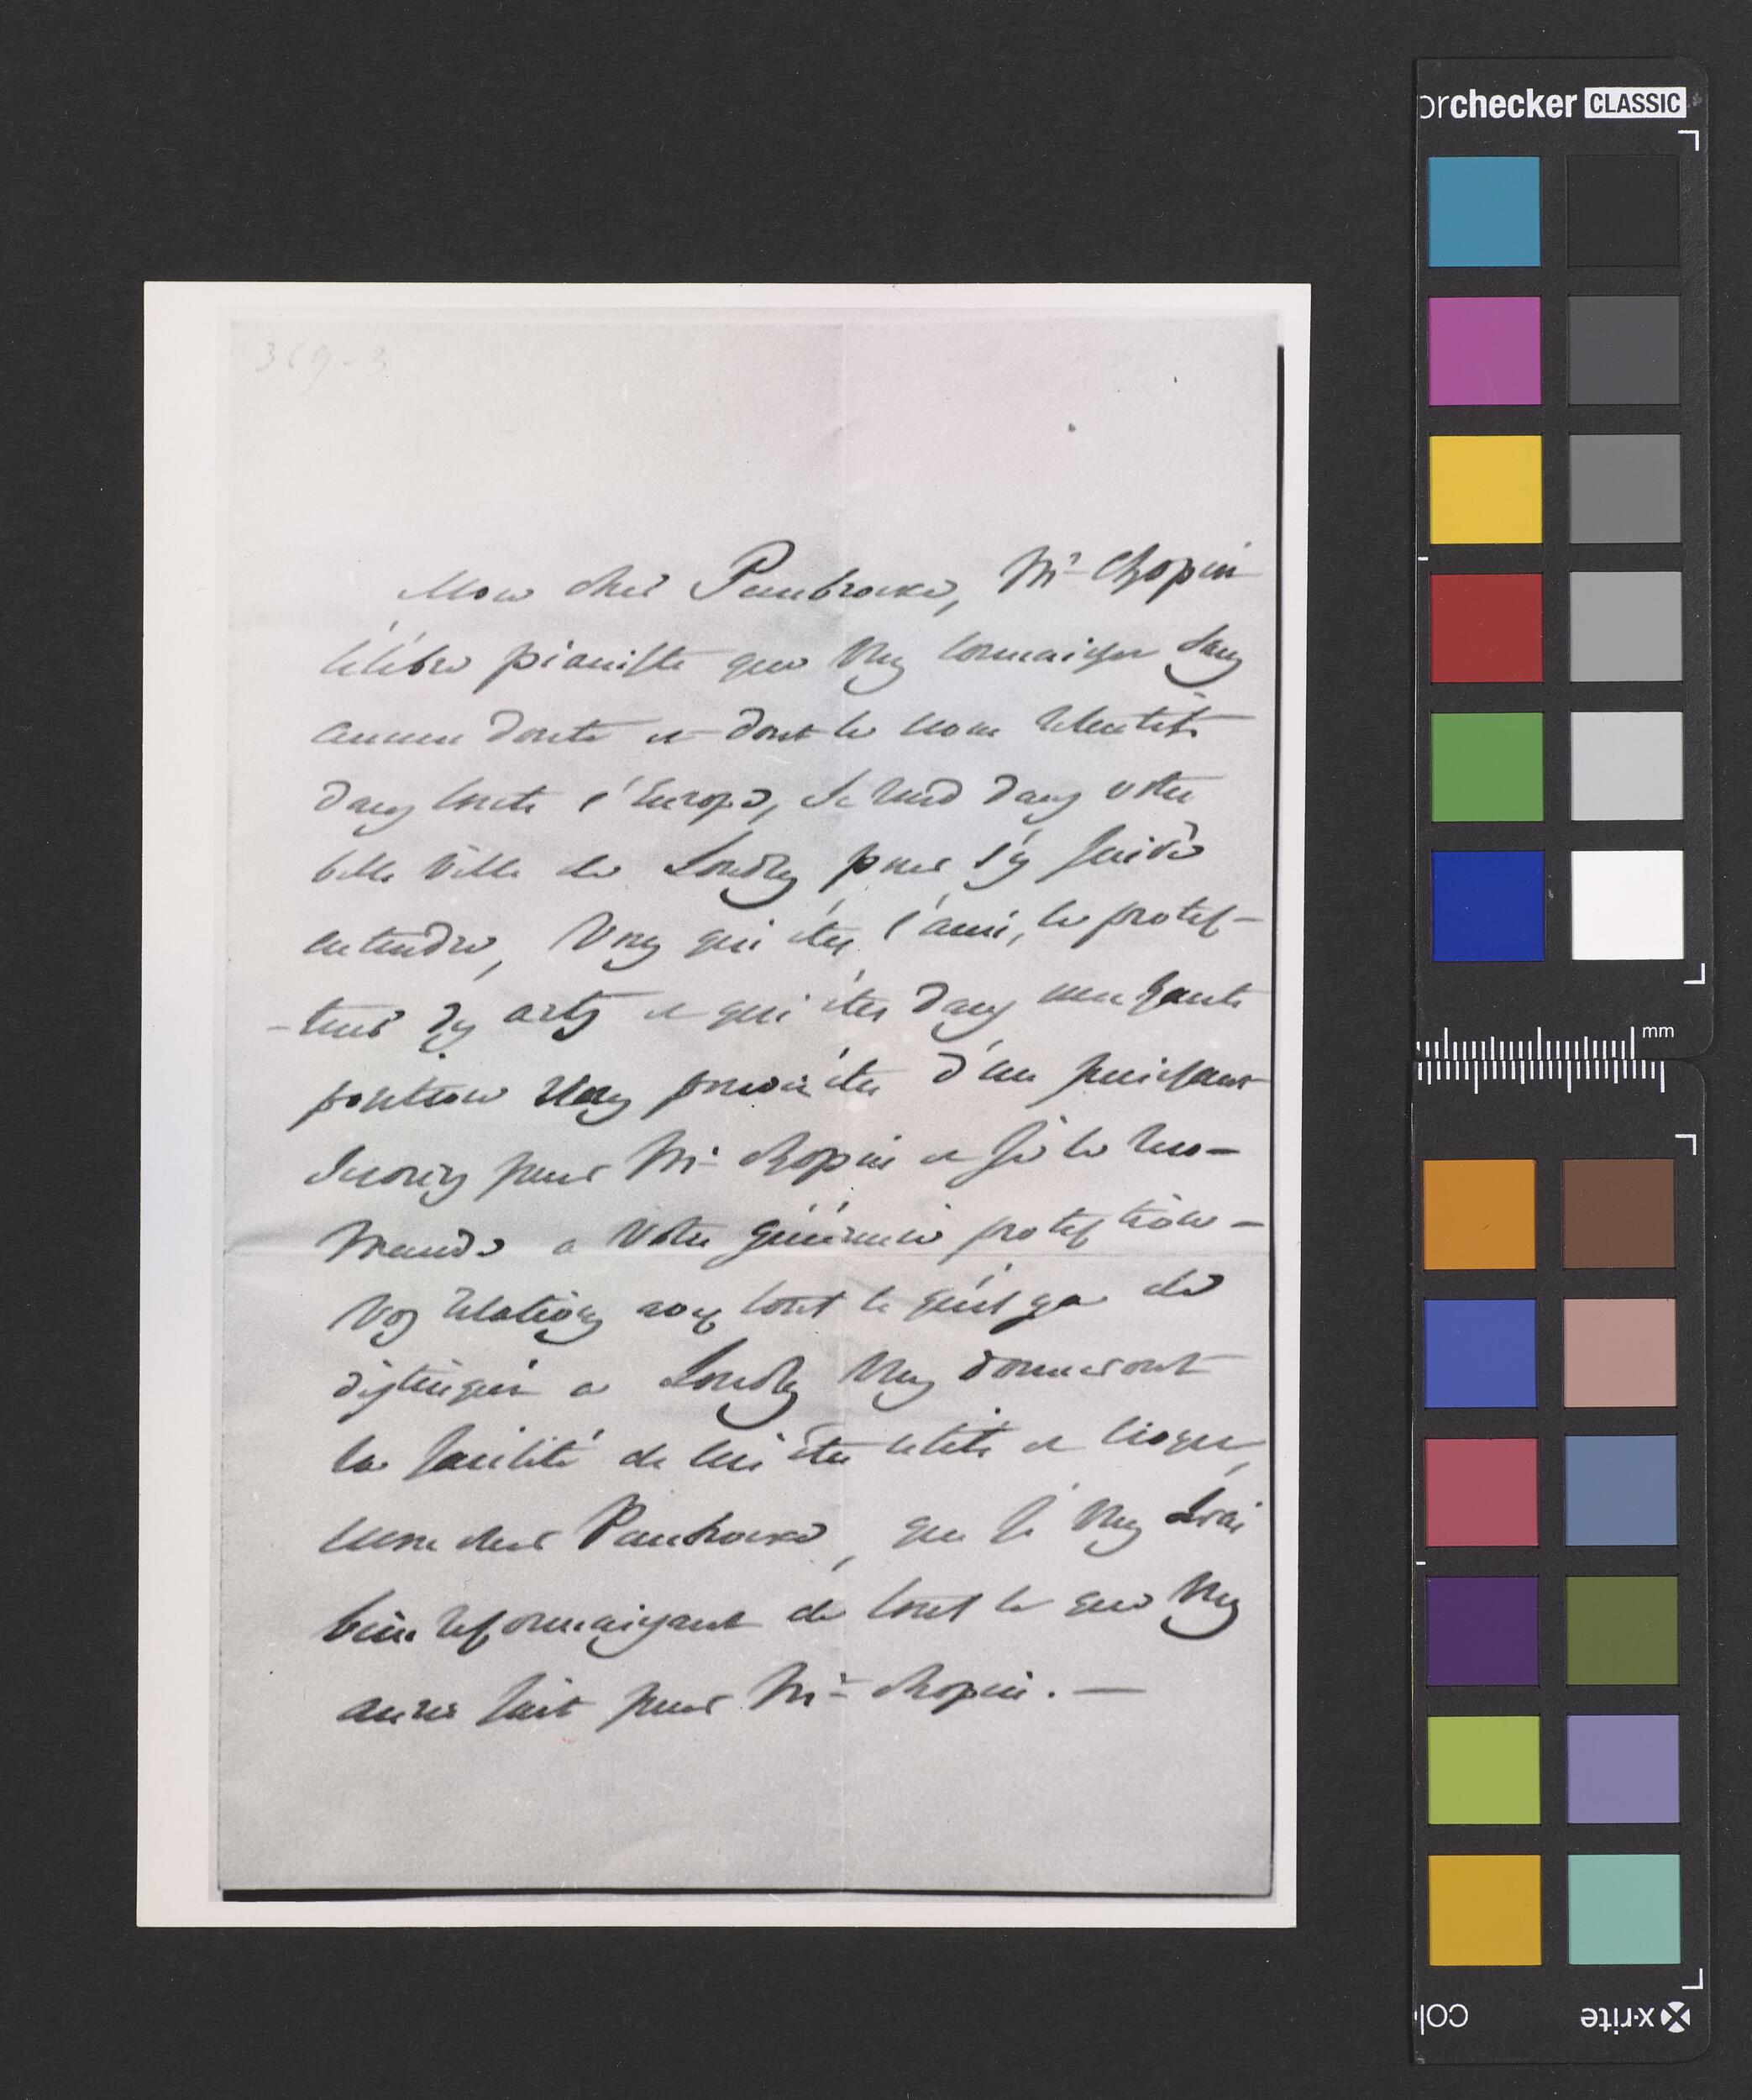 369-3
Mon cher Pembrocke, Mr Chopin
célèbre pianiste que vous connaissez sans
aucun doute et dont le nom retentit
dans toute l'Europe, se rend dans votre
belle ville de Londres pour s'y faire
entendre, Vous qui êtes l'ami, le protec-
-teur des arts et qui êtes dans une haute
position vous pouvez être d'un puissant
secours pour Mr Chopin et je le reco-
mande a votre généreuse protection -
Vos relations avec tout ce qu'il y a de
distingué a Londres vous donneront
la facilité de lui être utile et croyez,
mon cher Pembrocke, que je vous serai
bien reconnaissant de tout ce que vous
aurez fait pour Mr Chopin. —
orchecker CLASSIC
mm
x-rite
col